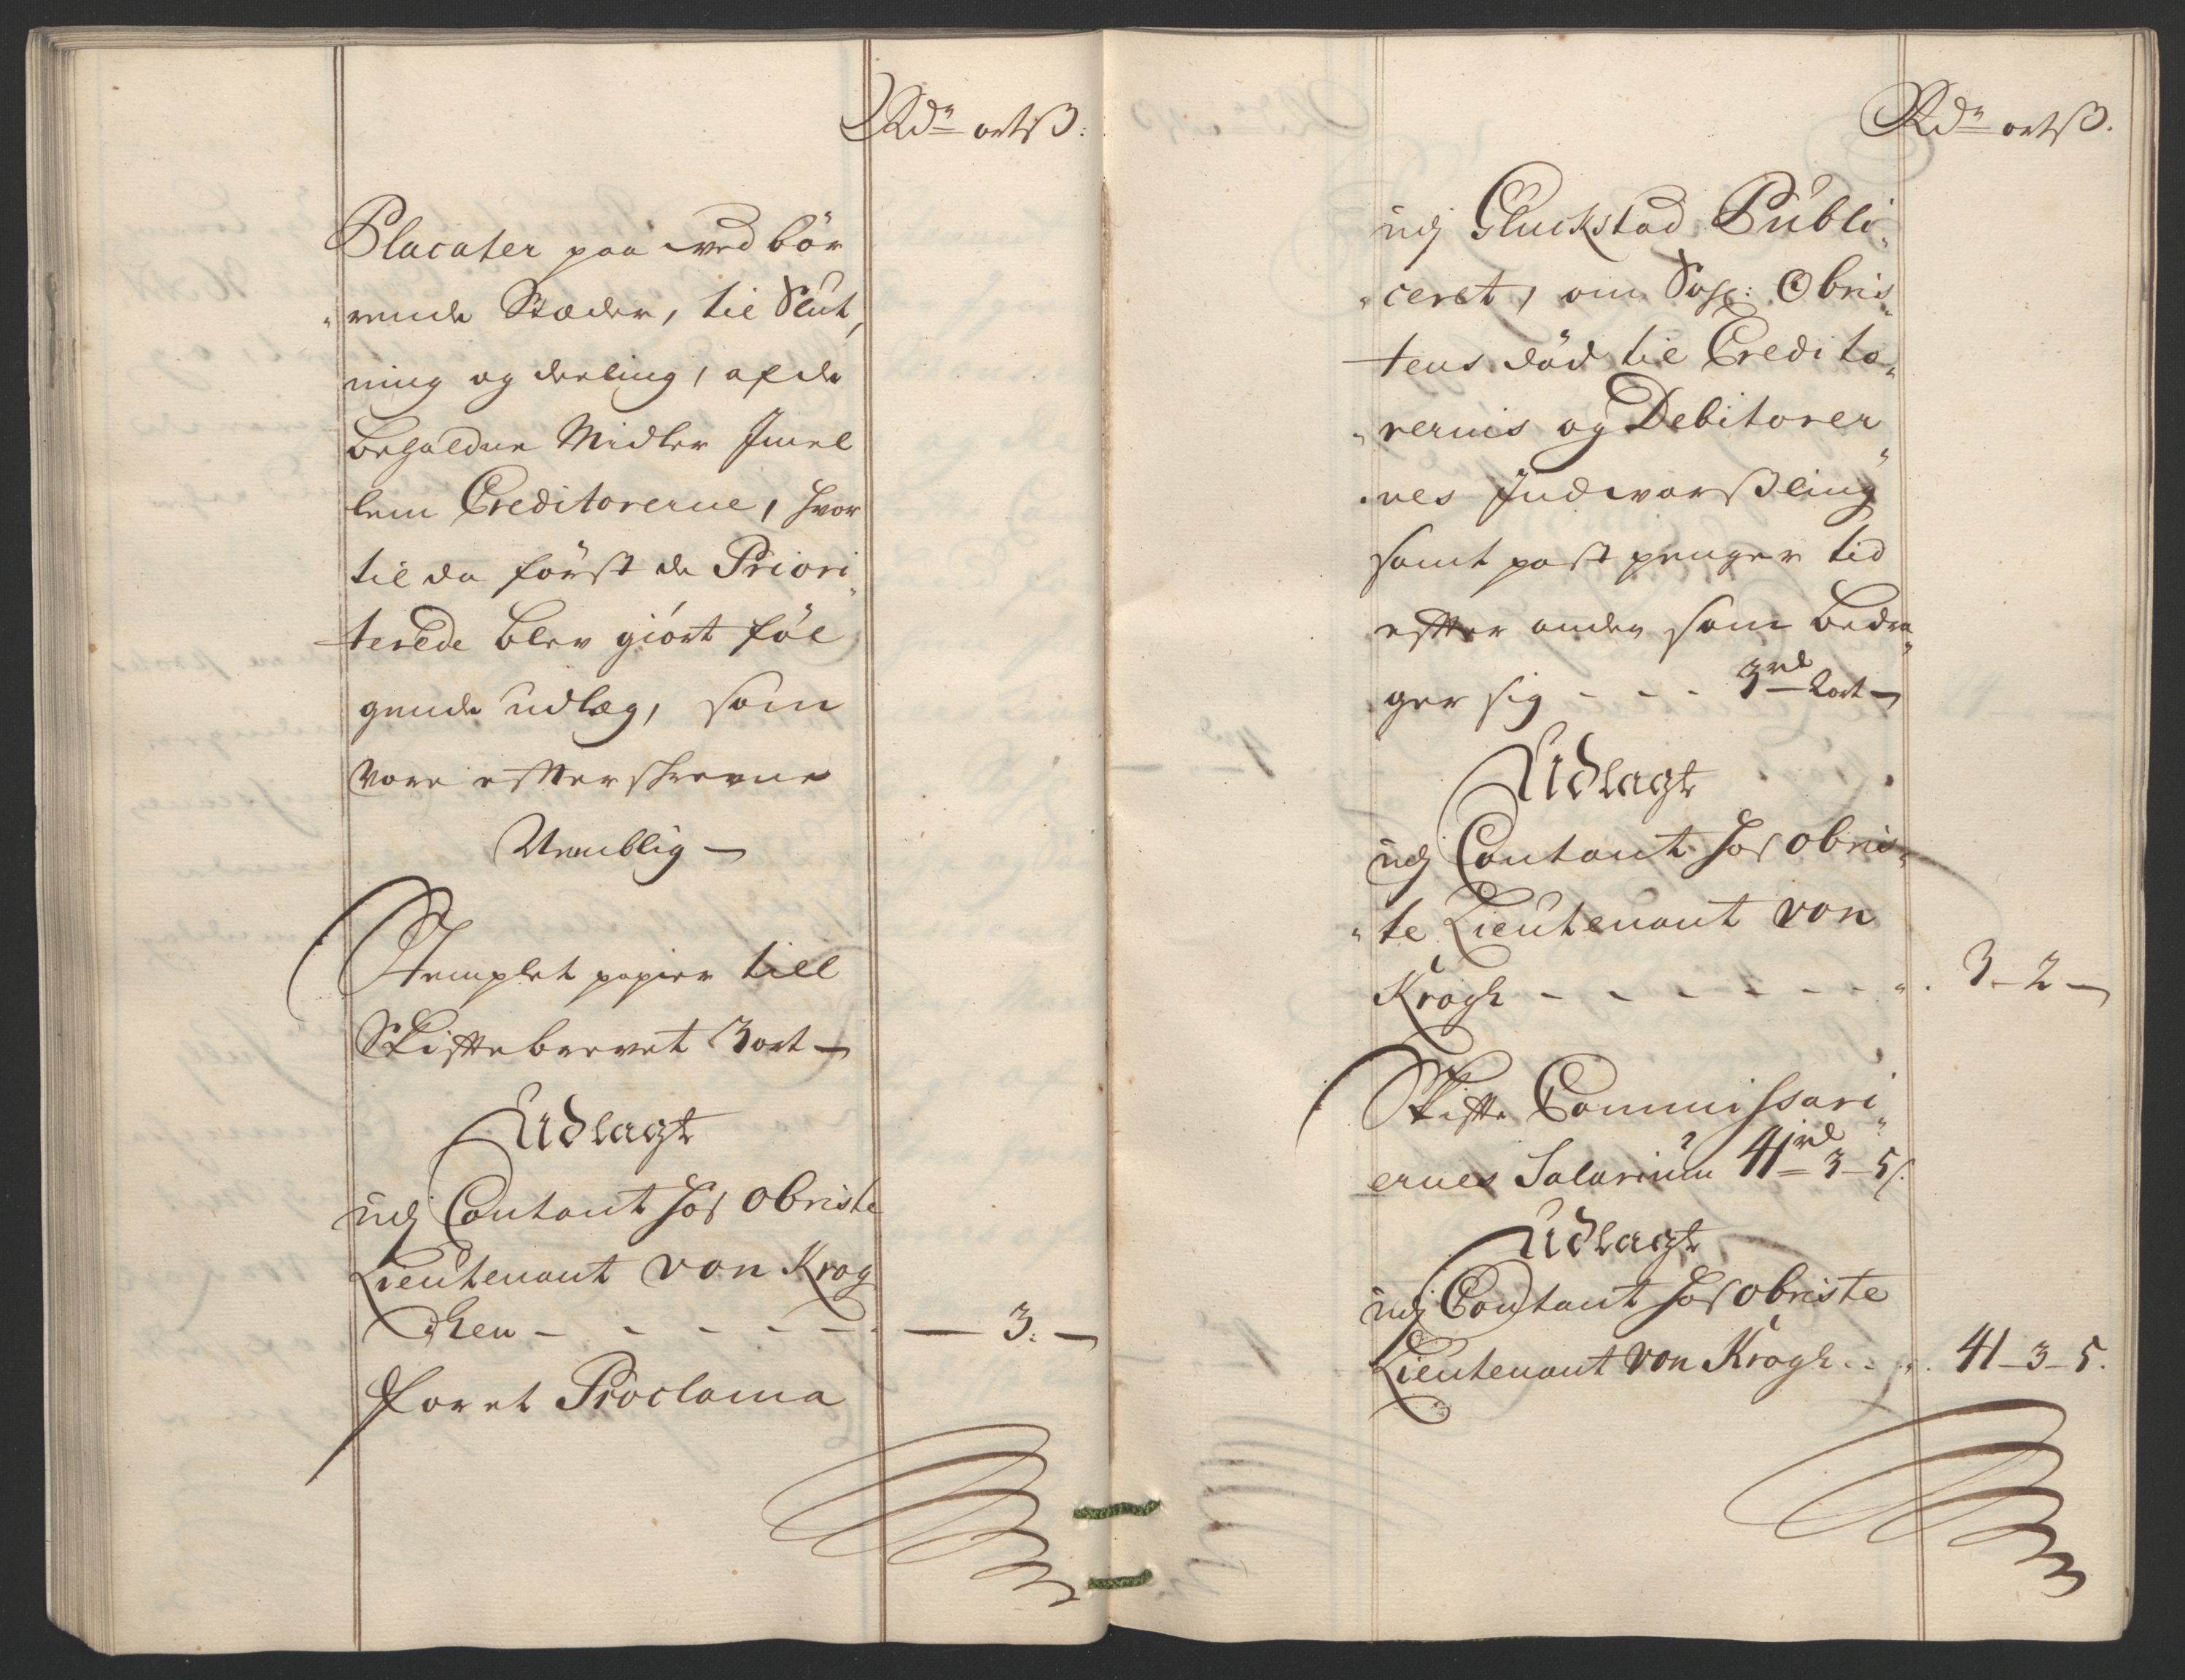 Rdr ort ß:
Placater paa vedbör
"rende Stæder, til Slut,
ning og deeling, af de
beholdne Midler Imel
lem Creditorerne, hvor
til da först de Priori"
terede blev giört föl
gende udlæg, som
vare efterskrevne
Nemblig —
Stemplet papier till
Skiftebrevet 3 ort —
Udlagt
udj Contant hos Obriste
Lieutenant von Krog
hen - - - - - - — 3. —
For et Proclama
Rdr ort ß.
udj Gluckstad Publi"
"ceret, om Sahl: Obris"
tens död til Credito"
"rernis og Debitorer"
"nes Indvarßling
samt post penger tid
efter anden som bedra"
ger sig - - - 3 rd 2 ort —
Udlagt
udj Contant hos obris"
"te Lieutenant von
Krogh - - - - - - - 3 - 2 —
Skifte Commissari"
ernes Salarium 41 rd 3 - 5 ß.
Udlagt
udj Contant hos obriste
Lieutenant von Krogh . . . 41 - 3 - 5.